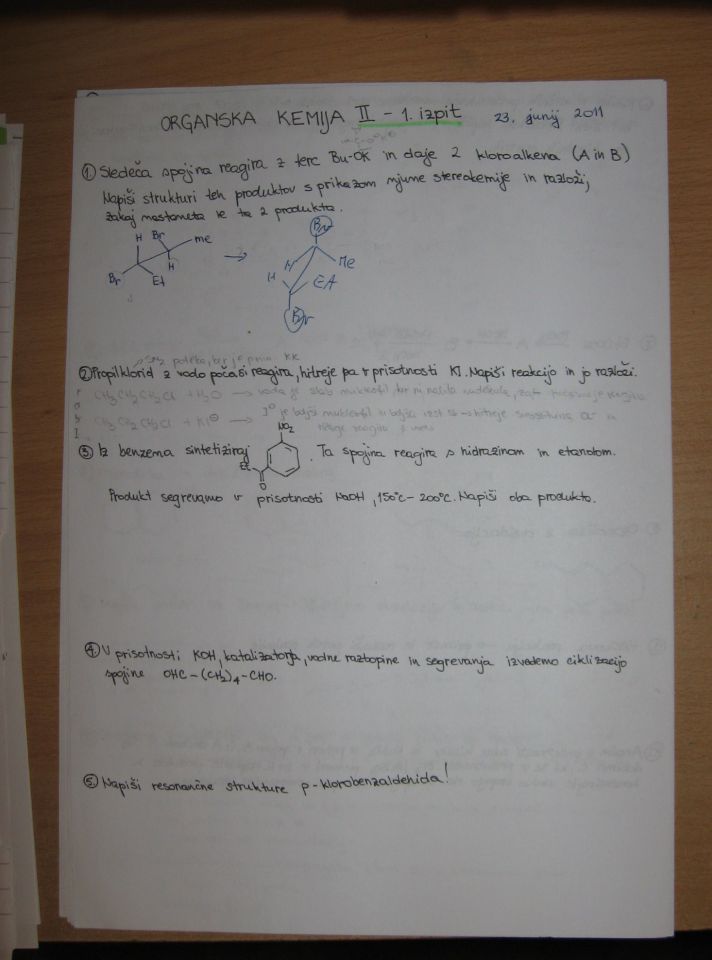 ORGANSKA KEMIJA II - 1. izpit 23. junij 2011
① Sledeča spojina reagira z terc Bu-OK in daje 2 kloroalkena (A in B)
Napiši strukturi teh produktov s prikazom njune stereokemije in razloži,
zakaj nastaneta le ta 2 produkta.
H Br Me
Br Et H
Br
H Me
H Et
Br
② Propilklorid z vodo počasi reagira, hitreje pa v prisotnosti KI. Napiši reakcijo in jo razloži.
CH3CH2CH2Cl + H2O → voda je slab nukleofil
CH3CH2CH2Cl + KI → I⊖ je boljši nukleofil
NO2
③ Iz benzena sintetiziraj . Ta spojina reagira s hidrazinom in etanolom.
Et
O
Produkt segrevamo v prisotnosti NaOH, 150°C - 200°C. Napiši oba produkta.
④ V prisotnosti KOH, katalizatorja, vodne raztopine in segrevanja izvedemo ciklizacijo
spojine OHC - (CH2)4 - CHO.
⑤ Napiši resonančne strukture p-klorobenzaldehida!